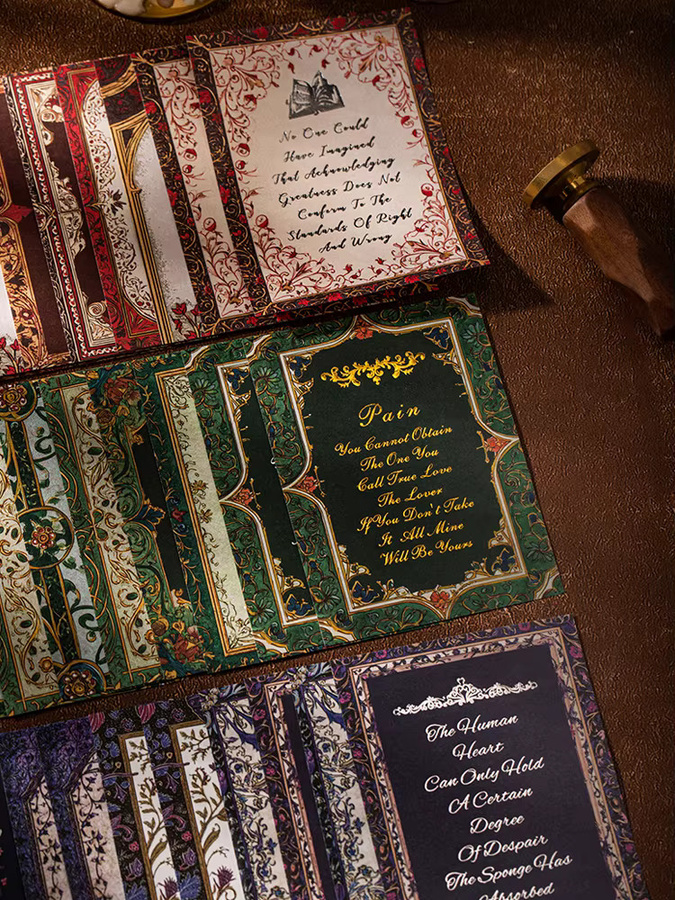 No One Could
Have Imagined
That Acknowledging
Greatness Does Not
Conform To The
Standards Of Right
And Wrong
Pain
You Cannot Obtain
The One You
Call True Love
The Lover
If You Don't Take
It All Mine
Will Be Yours
The Human
Heart
Can Only Hold
A Certain
Degree
Of Despair
The Sponge Has
Absorbed